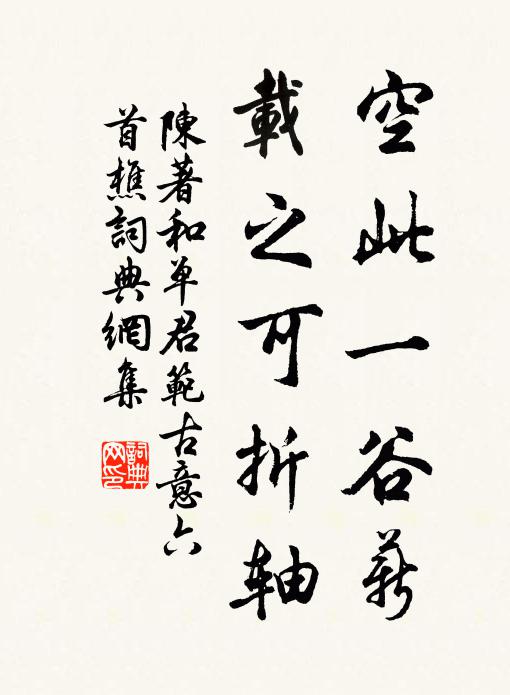 空此一谷薪
載之可折軸
陳著和單君範古意六
首樵詞典網集
詞典網印